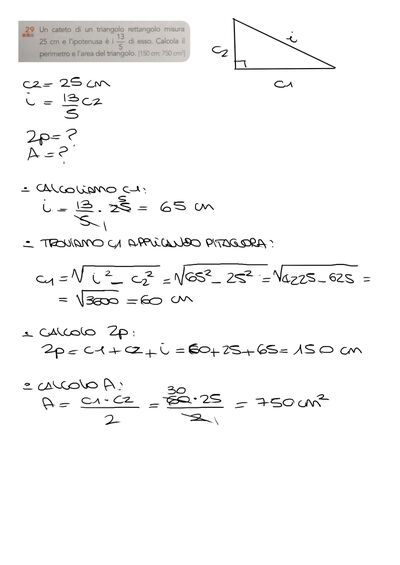 29 Un cateto di un triangolo rettangolo misura
25 cm e l'ipotenusa è i 13/5 di esso. Calcola il
perimetro e l'area del triangolo. [150 cm; 750 cm²]
C2 i
C1
C2 = 25 cm
i = 13/5 C2
2p = ?
A = ?
- CALCOLIAMO C1:
i = 13/5 1 · 25 5 = 65 cm
- TROVIAMO C1 APPLICANDO PITAGORA:
C1 = √i² - C2² = √65² - 25² = √4225 - 625 =
= √3600 = 60 cm
- CALCOLO 2p:
2p = C1 + C2 + i = 60 + 25 + 65 = 150 cm
- CALCOLO A:
A = C1 · C2 / 2 = 30 60 · 25 / 2 1 = 750 cm²